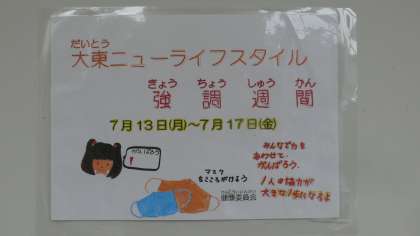 だいとう
大東ニューライフスタイル
きょう ちょう しゅう かん
強 調 週 間
7月13日(月)～7月17日(金)
がんばろう
!
みんなで力を
あわせて
がんばろう。
1人の協力が
大きな1歩になるよ
マスク
をこころがけよう
健康委員会